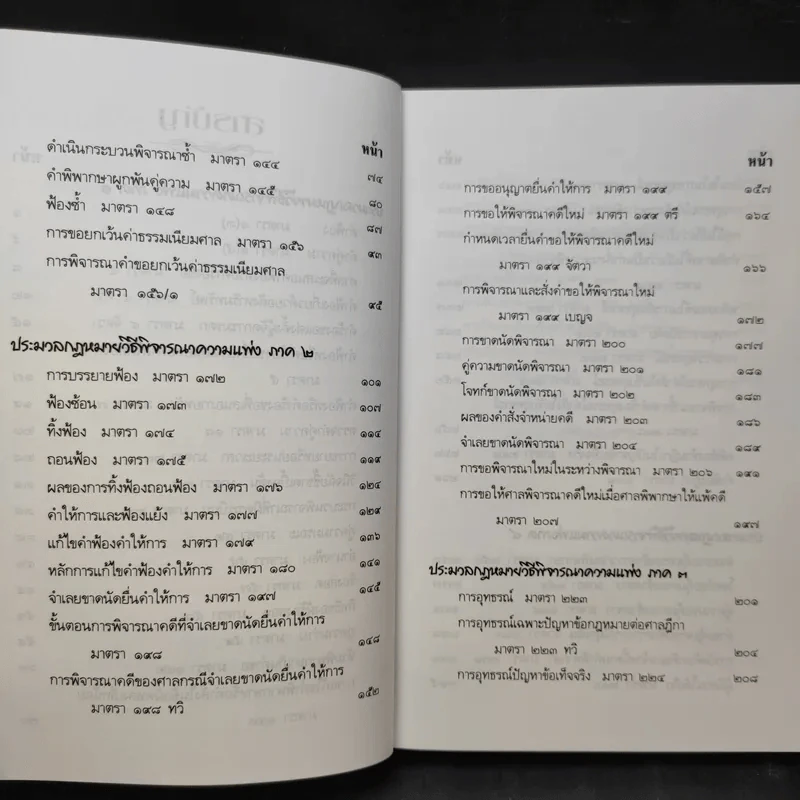 หน้า
ดำเนินกระบวนพิจารณาซ้ำ มาตรา ๑๔๔ ๗๔
คำพิพากษาผูกพันคู่ความ มาตรา ๑๔๕ ๘๐
ฟ้องซ้ำ มาตรา ๑๔๘ ๘๗
การขอยกเว้นค่าธรรมเนียมศาล มาตรา ๑๕๖ ๙๓
การพิจารณาคำขอยกเว้นค่าธรรมเนียมศาล
มาตรา ๑๕๖/๑ ๙๕
ประมวลกฎหมายวิธีพิจารณาความแพ่ง ภาค ๒
การบรรยายฟ้อง มาตรา ๑๗๒ ๑๐๑
ฟ้องซ้อน มาตรา ๑๗๓ ๑๐๗
ทิ้งฟ้อง มาตรา ๑๗๔ ๑๑๔
ถอนฟ้อง มาตรา ๑๗๕ ๑๑๙
ผลของการทิ้งฟ้องถอนฟ้อง มาตรา ๑๗๖ ๑๒๔
คำให้การและฟ้องแย้ง มาตรา ๑๗๗ ๑๒๙
แก้ไขคำฟ้องคำให้การ มาตรา ๑๗๙ ๑๓๖
หลักการแก้ไขคำฟ้องคำให้การ มาตรา ๑๘๐ ๑๔๑
จำเลยขาดนัดยื่นคำให้การ มาตรา ๑๙๗ ๑๔๕
ขั้นตอนการพิจารณาคดีที่จำเลยขาดนัดยื่นคำให้การ
มาตรา ๑๙๘ ๑๔๘
การพิจารณาคดีของศาลกรณีจำเลยขาดนัดยื่นคำให้การ
มาตรา ๑๙๘ ทวิ ๑๕๒
หน้า
การขออนุญาตยื่นคำให้การ มาตรา ๑๙๙ ๑๕๗
การขอให้พิจารณาคดีใหม่ มาตรา ๑๙๙ ตรี ๑๖๔
กำหนดเวลายื่นคำขอให้พิจารณาคดีใหม่
มาตรา ๑๙๙ จัตวา ๑๖๖
การพิจารณาและสั่งคำขอให้พิจารณาใหม่
มาตรา ๑๙๙ เบญจ ๑๗๒
การขาดนัดพิจารณา มาตรา ๒๐๐ ๑๗๗
คู่ความขาดนัดพิจารณา มาตรา ๒๐๑ ๑๘๑
โจทก์ขาดนัดพิจารณา มาตรา ๒๐๒ ๑๘๓
ผลของคำสั่งจำหน่ายคดี มาตรา ๒๐๓ ๑๘๖
จำเลยขาดนัดพิจารณา มาตรา ๒๐๔ ๑๘๙
การขอพิจารณาใหม่ในระหว่างพิจารณา มาตรา ๒๐๖ ๑๙๑
การขอให้ศาลพิจารณาคดีใหม่เมื่อศาลพิพากษาให้แพ้คดี
มาตรา ๒๐๗ ๑๙๗
ประมวลกฎหมายวิธีพิจารณาความแพ่ง ภาค ๓
การอุทธรณ์ มาตรา ๒๒๓ ๒๐๑
การอุทธรณ์เฉพาะปัญหาข้อกฎหมายต่อศาลฎีกา
มาตรา ๒๒๓ ทวิ ๒๐๔
การอุทธรณ์ปัญหาข้อเท็จจริง มาตรา ๒๒๔ ๒๐๘